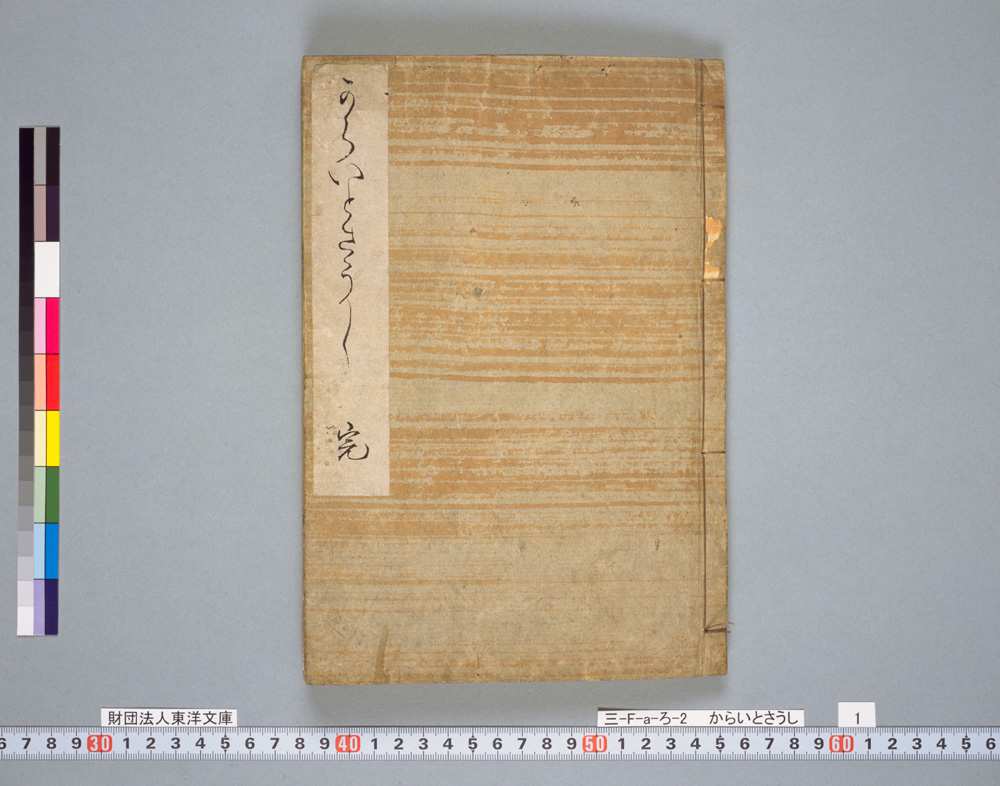 からいとさうし
完
財団法人東洋文庫
三-F-a-ろ-2 からいとさうし
1
6 7 8 9 30 1 2 3 4 5 6 7 8 9 40 1 2 3 4 5 6 7 8 9 50 1 2 3 4 5 6 7 8 9 60 1 2 3 4 5 6